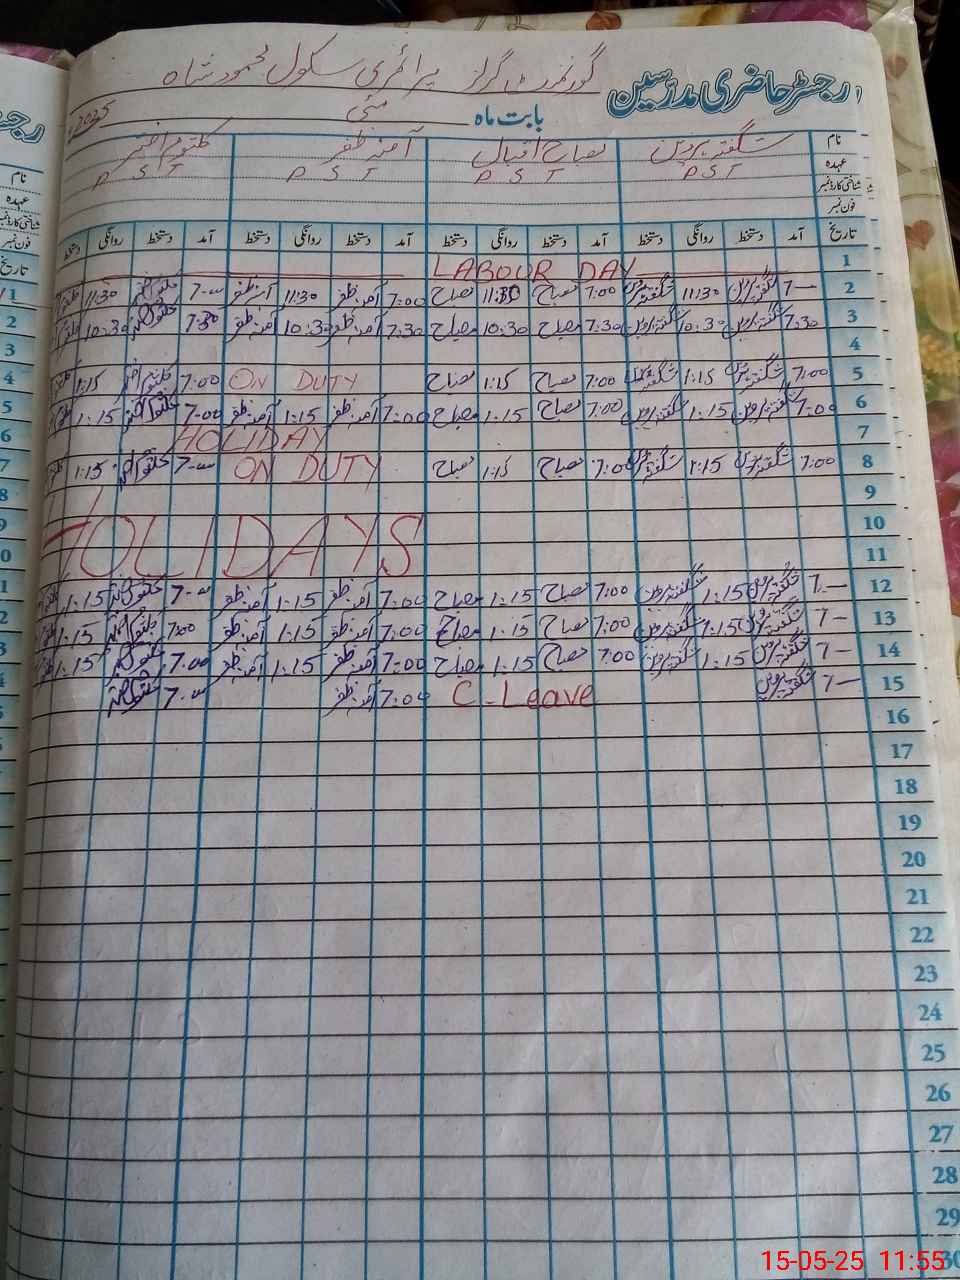 رجسٹر حاضری مدرسین گورنمنٹ گرلز پرائمری سکول محمود شاہ
بابت ماہ مئی 2025
نام شگفتہ پروین مصباح اقبال آمنہ ظفر کلثوم اختر
عہدہ PST PST PST PST
شناختی کارڈ نمبر
فون نمبر
تاریخ آمد دستخط روانگی دستخط آمد دستخط روانگی دستخط آمد دستخط روانگی دستخط آمد دستخط روانگی دستخط
1 LABOUR DAY
2 7— شگفتہ پروین 11:30 شگفتہ پروین 7:00 مصباح 11:30 مصباح 7:00 آمنہ ظفر 11:30 آمنہ ظفر 7— کلثوم اختر 11:30
3 7:30 شگفتہ پروین 10:30 شگفتہ پروین 7:30 مصباح 10:30 مصباح 7:30 آمنہ ظفر 10:30 آمنہ ظفر 7:30 کلثوم اختر 10:30
4
5 7:00 شگفتہ پروین 1:15 شگفتہ پروین 7:00 مصباح 1:15 مصباح ON DUTY 7:00 کلثوم اختر 1:15
6 7:00 شگفتہ پروین 1:15 شگفتہ پروین 7:00 مصباح 1:15 مصباح 7:00 آمنہ ظفر 1:15 آمنہ ظفر 7:00 کلثوم اختر 1:15
7 HOLIDAY
8 7:00 شگفتہ پروین 1:15 شگفتہ پروین 7:00 مصباح 1:15 مصباح ON DUTY 7— کلثوم اختر 1:15
9
10 HOLIDAYS
11
12 7— شگفتہ پروین 1:15 شگفتہ پروین 7:00 مصباح 1:15 مصباح 7:00 آمنہ ظفر 1:15 آمنہ ظفر 7— کلثوم اختر 1:15
13 7— شگفتہ پروین 1:15 شگفتہ پروین 7:00 مصباح 1:15 مصباح 7:00 آمنہ ظفر 1:15 آمنہ ظفر 7:00 کلثوم اختر 1:15
14 7— شگفتہ پروین 1:15 شگفتہ پروین 7:00 مصباح 1:15 مصباح 7:00 آمنہ ظفر 1:15 آمنہ ظفر 7:00 کلثوم اختر 1:15
15 7— شگفتہ پروین C-Leave 7:00 آمنہ ظفر 7— کلثوم اختر
16
17
18
19
20
21
22
23
24
25
26
27
28
29
30
15-05-25 11:55